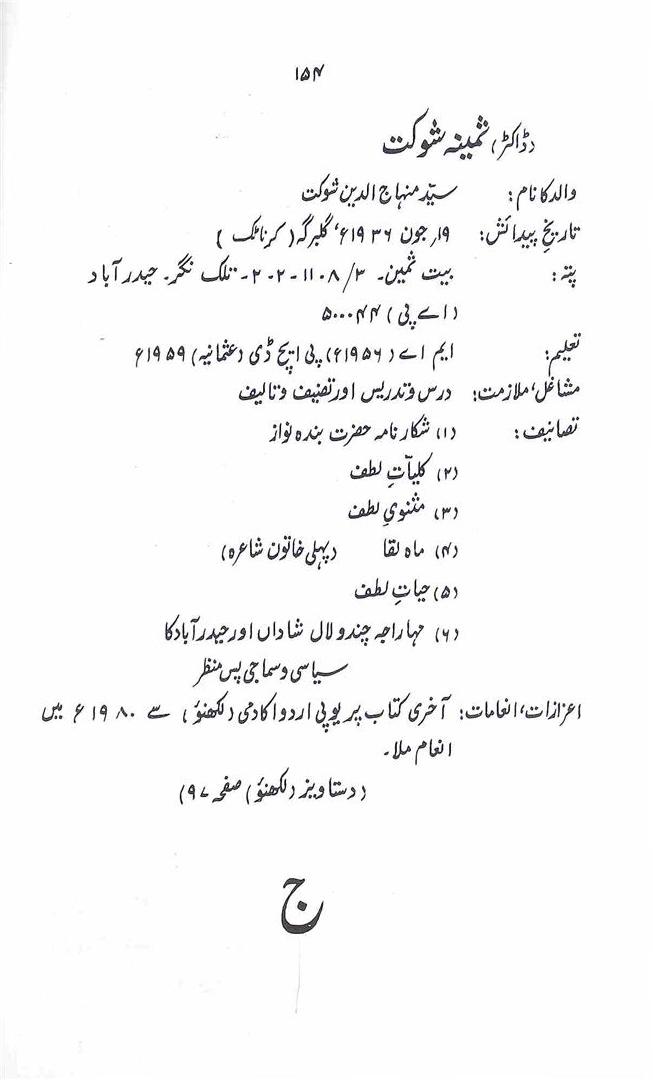 ۱۵۴
(ڈاکٹر) ثمینہ شوکت
والد کا نام: سیّد منہاج الدین شوکت
تاریخِ پیدائش: ۱۹؍ جون ۱۹۳۶ء، گلبرگہ (کرناٹک)
پتہ: بیت ثمین۔ ۳/۱۱۰۸-۲-۲- تلک نگر۔ حیدرآباد
(اے پی) ۵۰۰۰۴۴
تعلیم: ایم اے (۱۹۵۶ء) پی ایچ ڈی (عثمانیہ) ۱۹۵۹ء
مشاغل، ملازمت: درس و تدریس اور تصنیف و تالیف
تصانیف: (۱) شکار نامہ حضرت بندہ نواز
(۲) کلیاّتِ لطف
(۳) مثنویِ لطف
(۴) ماہ لقا (پہلی خاتون شاعرہ)
(۵) حیاتِ لطف
(۶) مہاراجہ چندو لال شاداں اور حیدرآباد کا
سیاسی و سماجی پس منظر
اعزازات، انعامات: آخری کتاب پر یوپی اردو اکادمی (لکھنؤ) سے ۱۹۸۰ء میں
انعام ملا۔
(دستاویز (لکھنؤ) صفحہ ۹۷)
ج